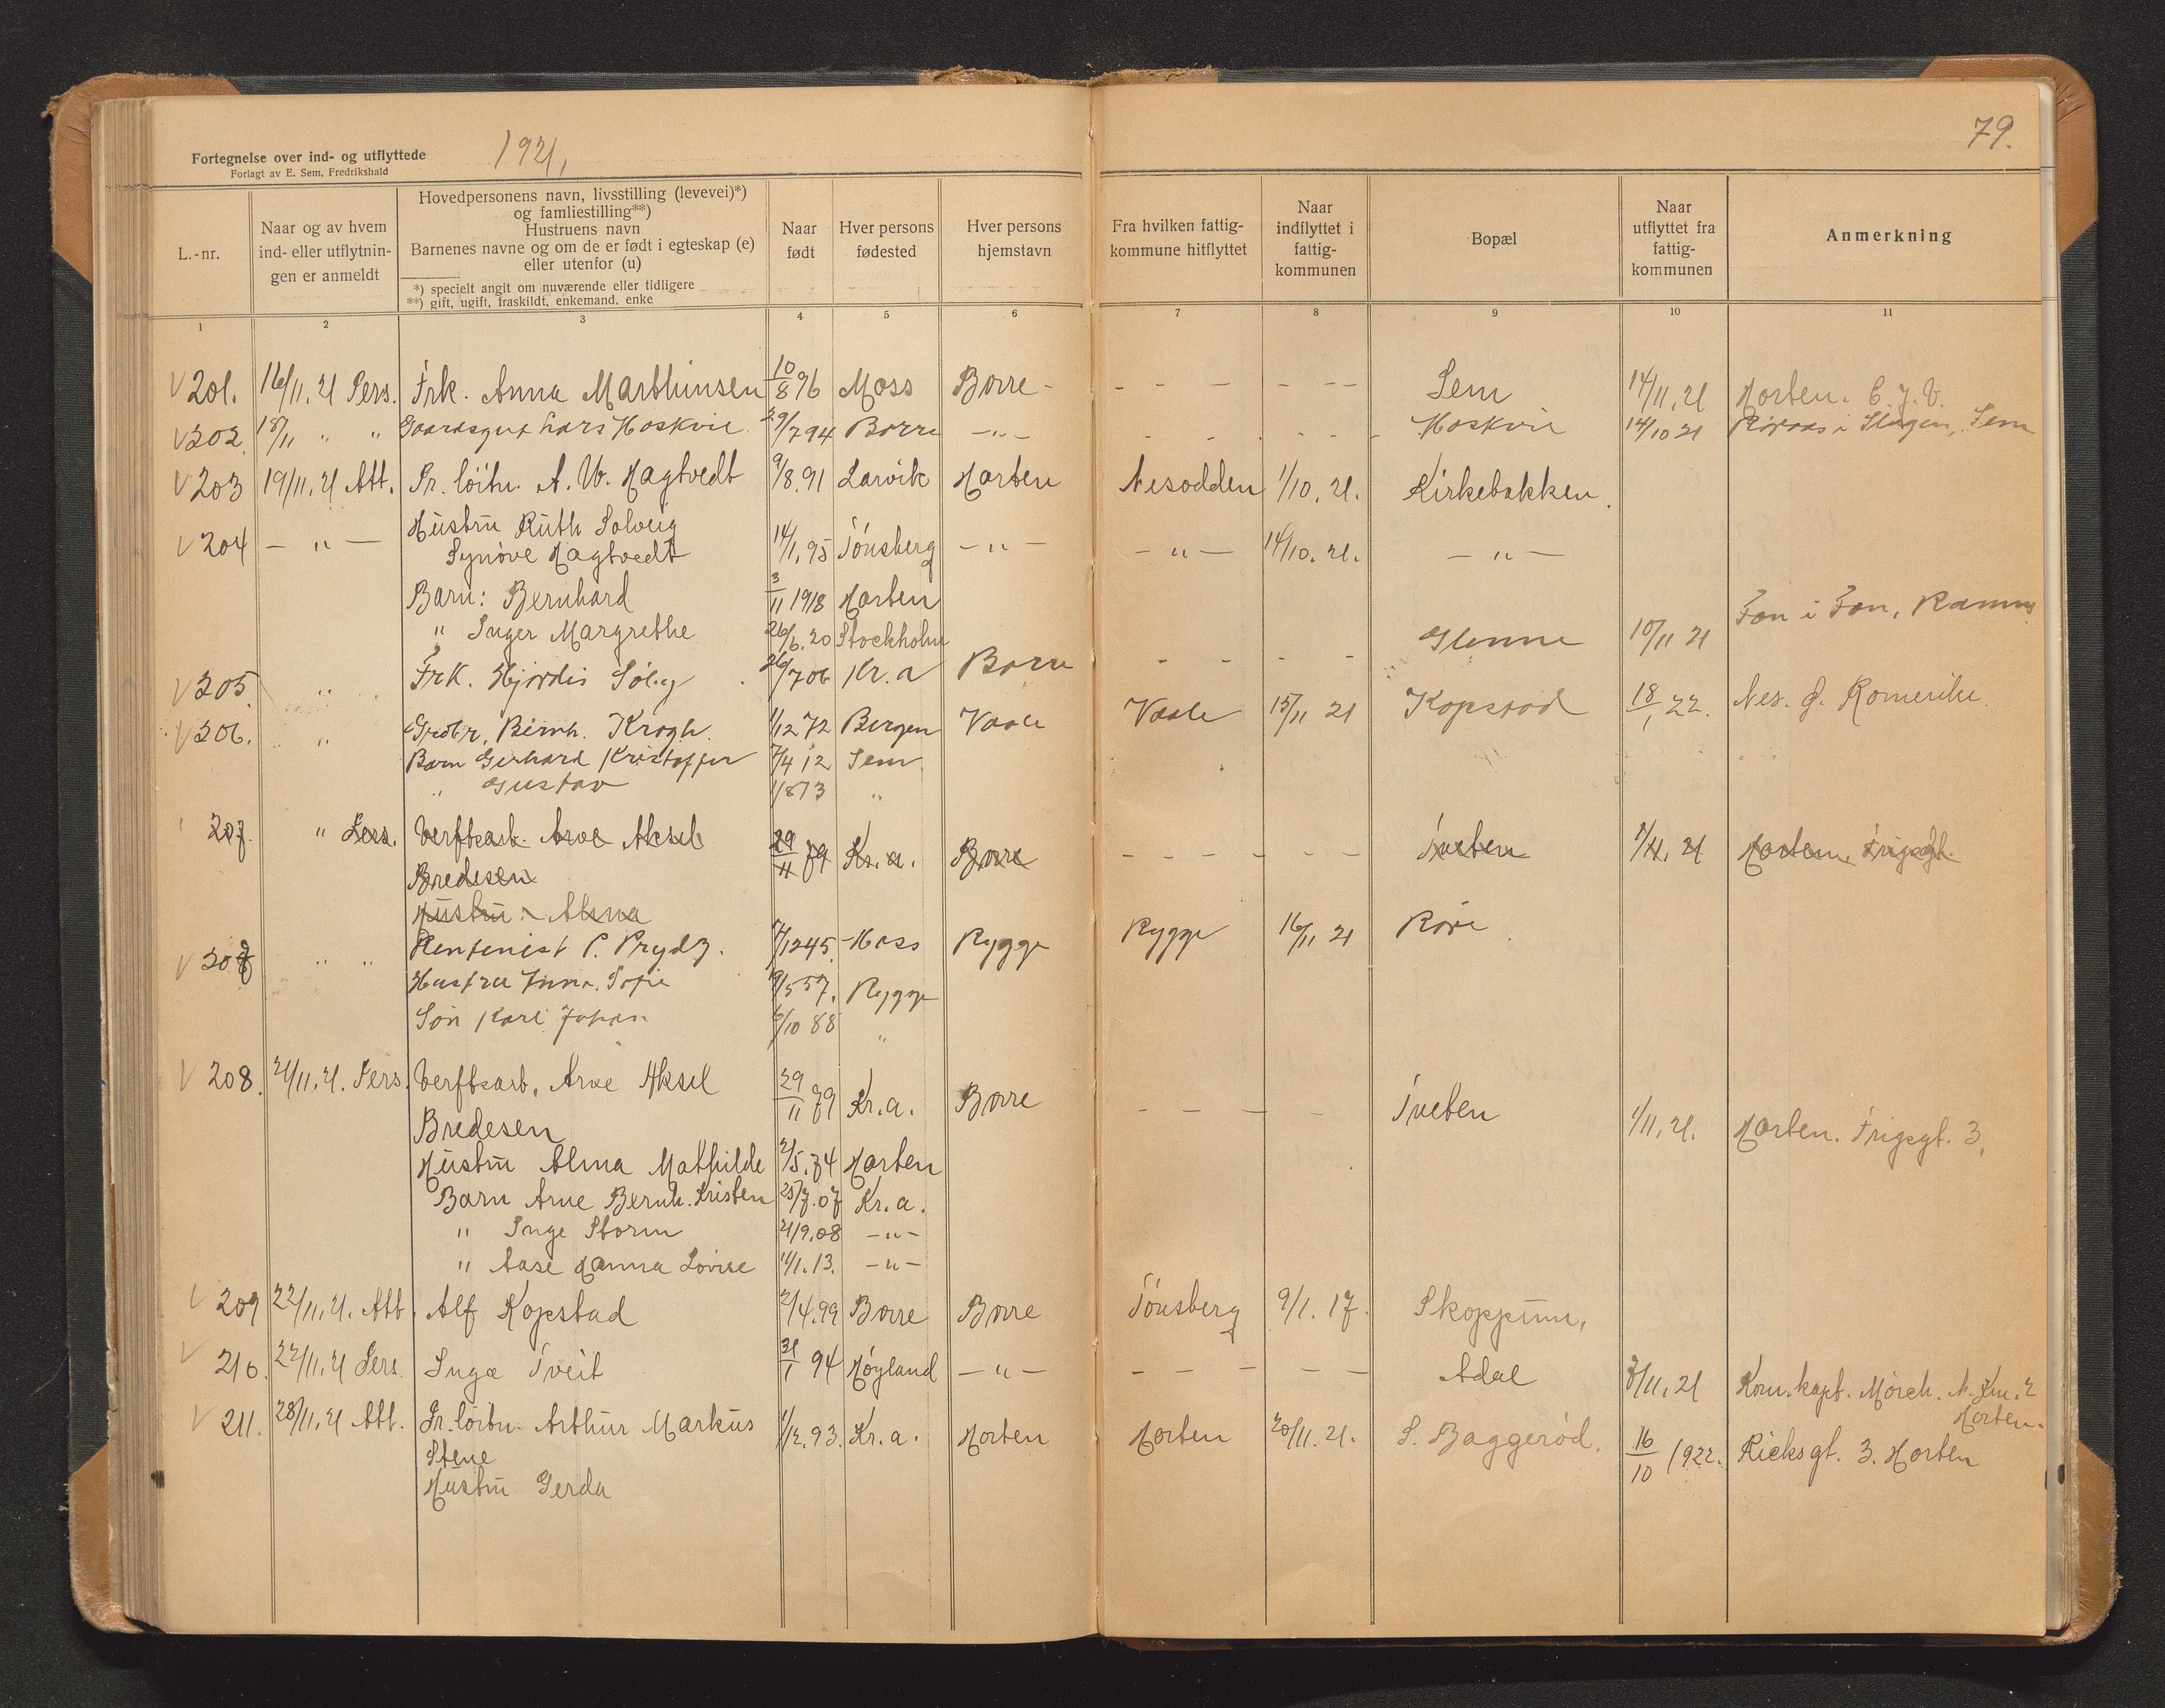 79.
Fortegnelse over ind- og utflyttede 1921.
Forlagt av E. Sem, Fredrikshald
L.-nr.
Naar og av hvem
ind- eller utflytnin-
gen er anmeldt
Hovedpersonens navn, livsstilling (levevei)*)
og famliestilling**)
Hustruens navn
Barnenes navne og om de er født i egteskap (e)
eller utenfor (u)
*) specielt angit om nuværende eller tidligere
**) gift, ugift, fraskildt, enkemand, enke
Naar
født
Hver persons
fødested
Hver persons
hjemstavn
Fra hvilken fattig-
kommune hitflyttet
Naar
indflyttet i
fattig-
kommunen
Bopæl
Naar
utflyttet fra
fattig-
kommunen
Anmerkning
1 2 3 4 5 6 7 8 9 10 11
V 201. 16/11. 21 Pers. Frk. Anna Marthinsen 10/8 96 Moss Borre - - - - - - - Sem 14/11, 21 Horten. C. J. V.
V 202. 18/11 " " Lars Hoskvie 29/7 94 Borre - " - - - - - - - Hoskvie 14/10 21 Røraas i Slagen, Sem
V 203 19/11, 21 Att. Pr. löitn. A. W. Hagtvedt 9/8. 91 Larvik Horten Nesodden 1/10. 21. Kirkebakken.
Hustru Ruth Solveig
V 204 - " - Synöve Hagtvedt 14/1, 95 Tönsberg - " - - " - 14/10. 21. - " -
Barn: Bernhard 3/11 1918 Horten
" Inger Margrethe 26/6. 20 Stockholm
V 205. " Frk. Hjørdis 26/7 06 Kr. a Borre - - - - Glenne 10/11 21 Fon i Fon, Ramnes
V 206. " Bernh. Krogh. 1/12 72 Bergen Vaale Vaale 15/11 21 Kopstad 18/1 22. Nes. p. Romerike
Barn Gerhard Kristoffer 7/4 12 Sem
" Gustav 1/8 13 "
207. " Pers. Verftsarb. Arve Aksel 29/11 79 Kr. a. Borre - - - - - - Tveten 1/11, 21 Horten, Frigsgt.
Bredesen
Hustru: Alma
V 207 " " Rentenist P. Prydz. 7/12 45. Moss Rygge Rygge 16/11 21 Røre
Hustru Sofie 9/5 57. Rygge
Søn Karl Johan 6/10 88 "
V 208. 21/11. 21. Pers. Verftsarb. Arve Aksel 29/11 79 Kr. a. Borre - - - - Tveten 1/11, 21. Horten. Frigsgt. 3,
Bredesen
Hustru Alma Mathilde 2/5. 74 Horten
Barn Arne Bernh. Kristen 25/7. 07 Kr. a.
" Inge Storm 21/9. 08 - " -
" Aase Hanna Lovise 14/1. 13. - " -
V 209 22/11, 21. Att. Alf Kopstad 2/4. 99 Borre Borre Tönsberg 9/1. 17. Skoppum,
V 210. 22/11, 21 Pers. Inga Tveit 31/1 94 Høyland - " - - - - - - Adal 3/11, 21 Kom.kapt. Mörch. N.
Horten.
V 211. 28/11, 21 Att. Pr. löitn. Arthur Markus 1/12. 93. Kr. a. Horten Horten 20/11. 21. S. Baggerød. 16/10 1922. Rieksgt. 3. Horten
Stene
Hustru Gerda